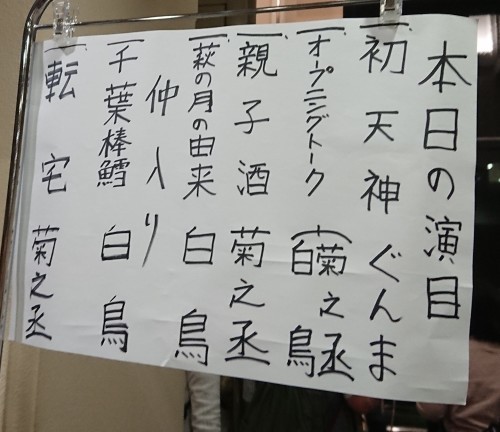 本日の演目
一、初天神 ぐんま
一、オープニングトーク (菊之丞 白鳥
一、親子酒 菊之丞
一、萩の月の由来 白鳥
仲入り
一、千葉棒鱈 白鳥
一、転宅 菊之丞